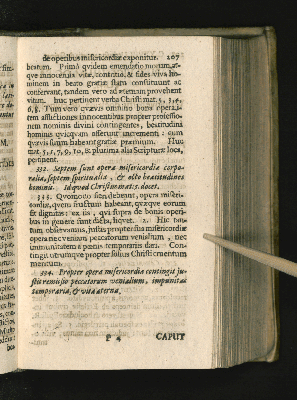 de operibus misericordiæ exponitur. 207
beatum. Primâ quidem emendatio morum, at-
qve innocentia vitæ, contritio, & fides viva ho-
minem in beato gratiæ statu constituunt ac
conservant, tandem vero ad æternam provehent
vitam. huc pertinent verba Christi mat. 5, 3, 4,
6, 8. Tum vero qvævis omnino bona opera, i-
tem afflictiones innocentibus propter professio-
nem nominis divini contingentes, beatitudini
hominis qvicqvam afferunt incrementi: cum
qvævis suum habeant gratiæ præmium. Huc
mat. 5, 5, 7, 9, 10, & plurima alia Scripturæ loca,
pertinent.
332. Septem sunt opera misericordiæ corpo-
ralia, septem spiritualia, & octo beatitudines
hominis. Id qvod Christus mat: 5. docet.
333. Qvomodo fieri debeant, opera miseri-
cordiæ, qvem fructum habeant, qvæqve eorum
sit dignitas: ex iis, qvi supra de bonis operi-
bus in genere sunt dicta, liqvet. 2. Hic tan-
tum observamus, justis propter sua misericordiæ
opera nec veniam peccatorum venialium, nec
immunitatem à poenis temporariis dari. Con-
tingit utrumqve propter solius Christi mentum
mentum.
334. Propter opera misericordiæ contingit ju-
stis remissio peccatorum venialium, impunitas
temporaria, & vita æterna.
P 4 CAPUT